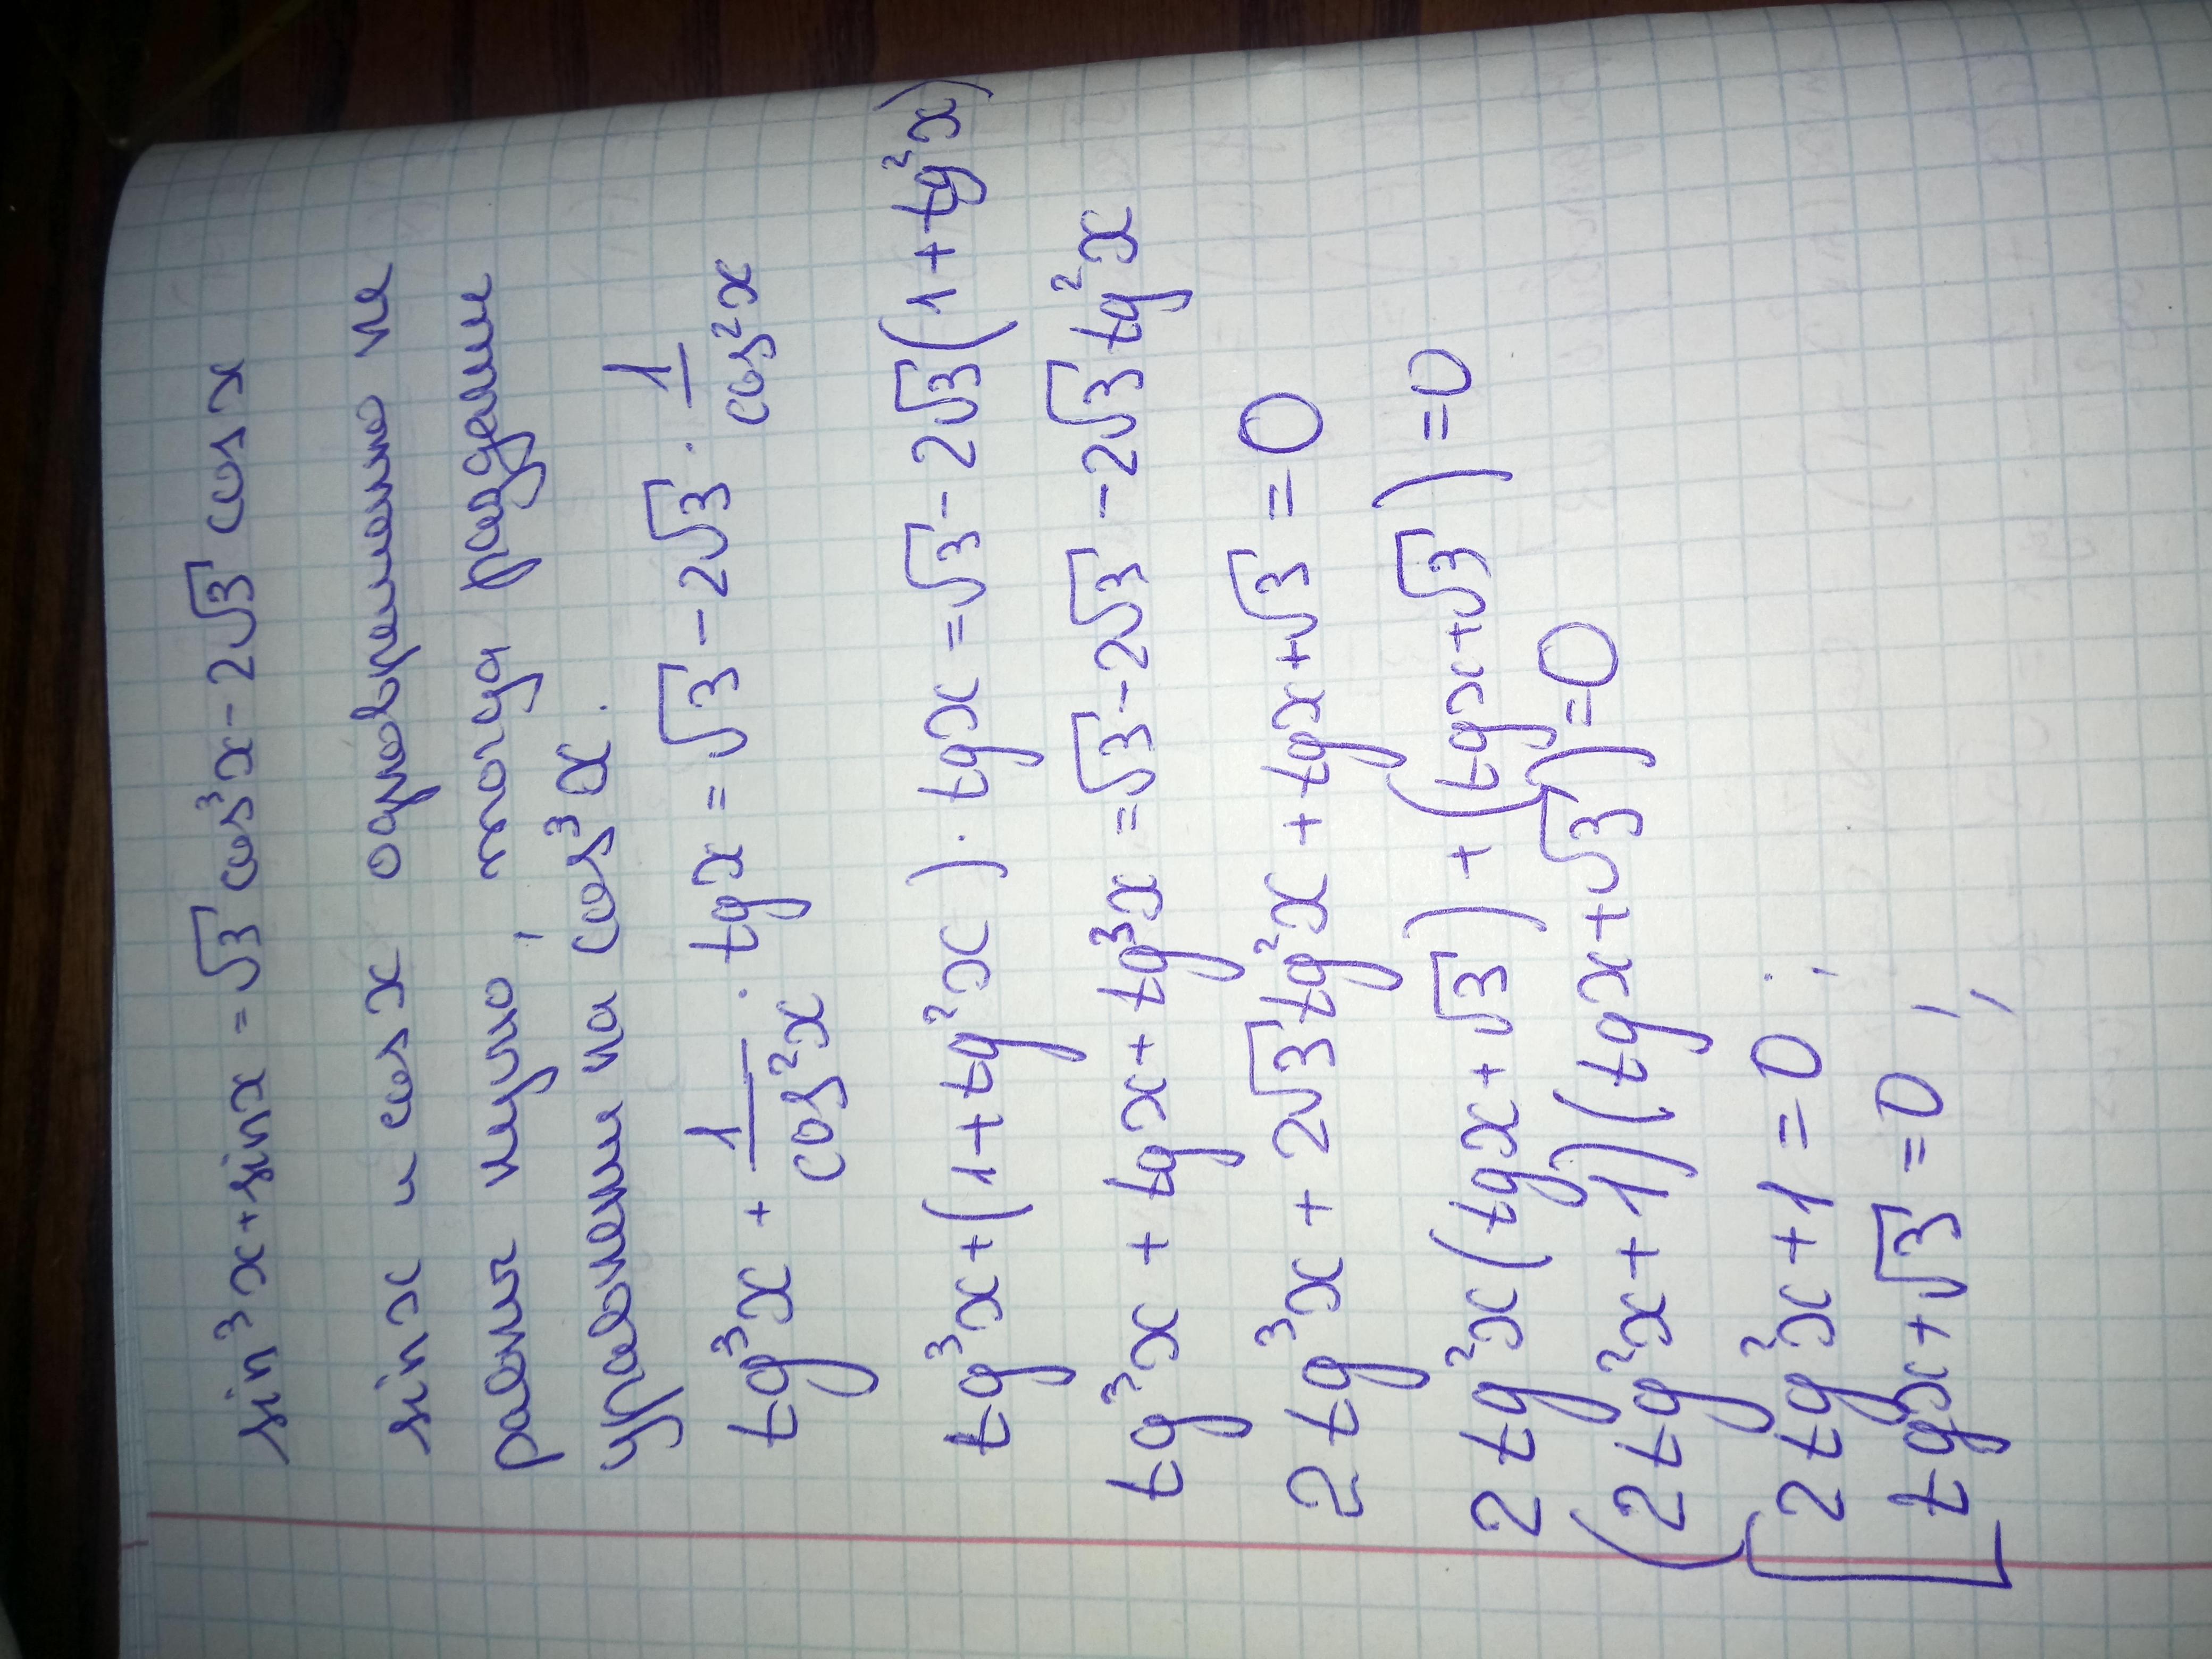 sin³x+sinx = √3 cos³x - 2√3 cos x
sin x и cos x одновременно не
равны нулю, тогда разделим
уравнение на cos³x.
tg³x + 1/cos²x · tgx = √3 - 2√3 · 1/cos²x
tg³x + (1+tg²x) · tgx = √3 - 2√3(1+tg²x)
tg³x + tgx + tg³x = √3 - 2√3 - 2√3tg²x
2tg³x + 2√3tg²x + tgx + √3 = 0
2tg²x(tgx+√3) + (tgx+√3) = 0
(2tg²x+1)(tgx+√3)=0
[2tg²x+1=0;
tgx+√3=0;